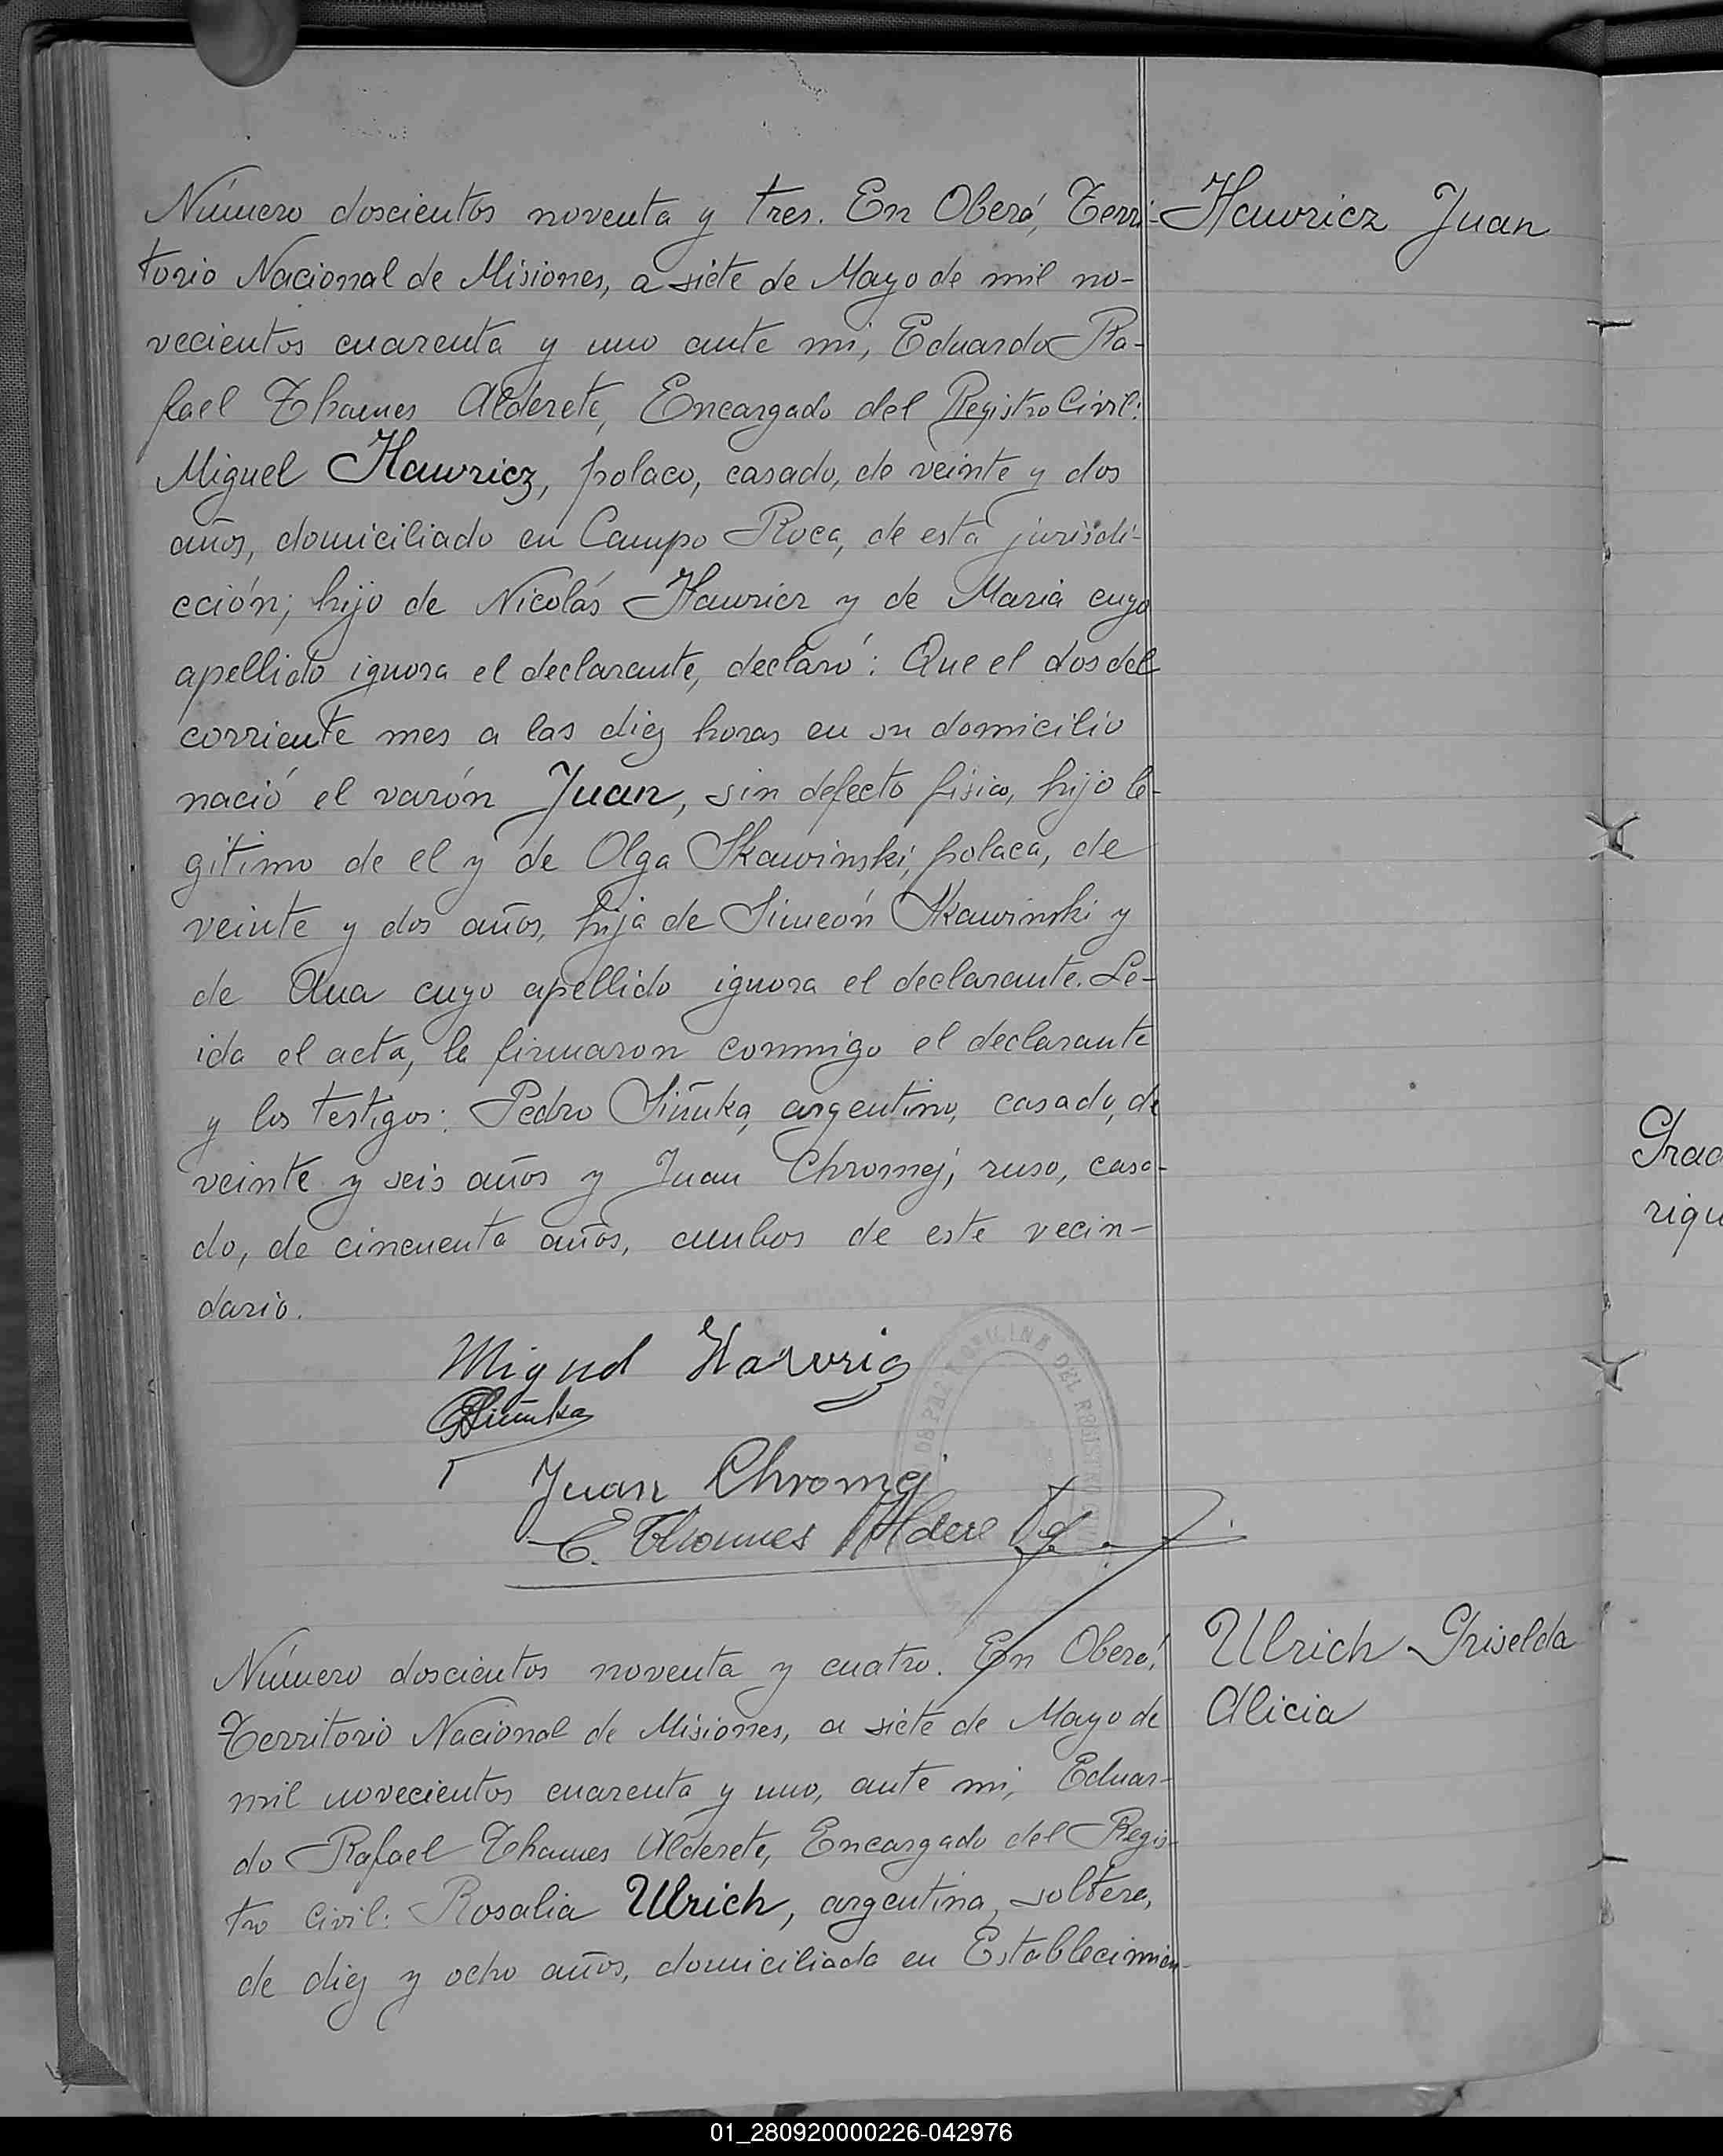 Número doscientos noventa y tres. En Oberá, Terri-
Hawricz Juan
torio Nacional de Misiones, a siete de Mayo de mil no-
vecientos cuarenta y uno ante mi, Eduardo Ra-
fael Thames Alderete, Encargado del Registro Civil:
Miguel Hawricz, polaco, casado, de veinte y dos
años, domiciliado en Campo Roca, de esta jurisdi-
cción; hijo de Nicolás Hawricz y de Maria cuyo
apellido ignora el declarante, declaró: Que el dos del
corriente mes a las diez horas en su domicilio
nació el varón Juan, sin defecto fisico, hijo le-
gitimo de el y de Olga Skawinski, polaca, de
veinte y dos años, hija de Simeón Skawinski y
de Ana cuyo apellido ignora el declarante. Le-
ida el acta, la firmaron conmigo el declarante
y los testigos: Pedro Siñuka, argentino, casado, de
veinte y seis años y Juan Chromej, ruso, casa-
do, de cincuenta años, ambos de este vecin-
dario.
Miguel
Juan Chromej
E. Thames Alderete
OFICINA DEL REGISTRO CIVIL
Número doscientos noventa y cuatro. En Oberá,
Ulrich Griselda
Alicia
Territorio Nacional de Misiones, a siete de Mayo de
mil novecientos cuarenta y uno, ante mi, Eduar-
do Rafael Thames Alderete, Encargado del Regis-
tro Civil: Rosalia Ulrich, argentina, soltera,
de diez y ocho años, domiciliada en Establecimien-
Grac
riqu
01_280920000226-042976